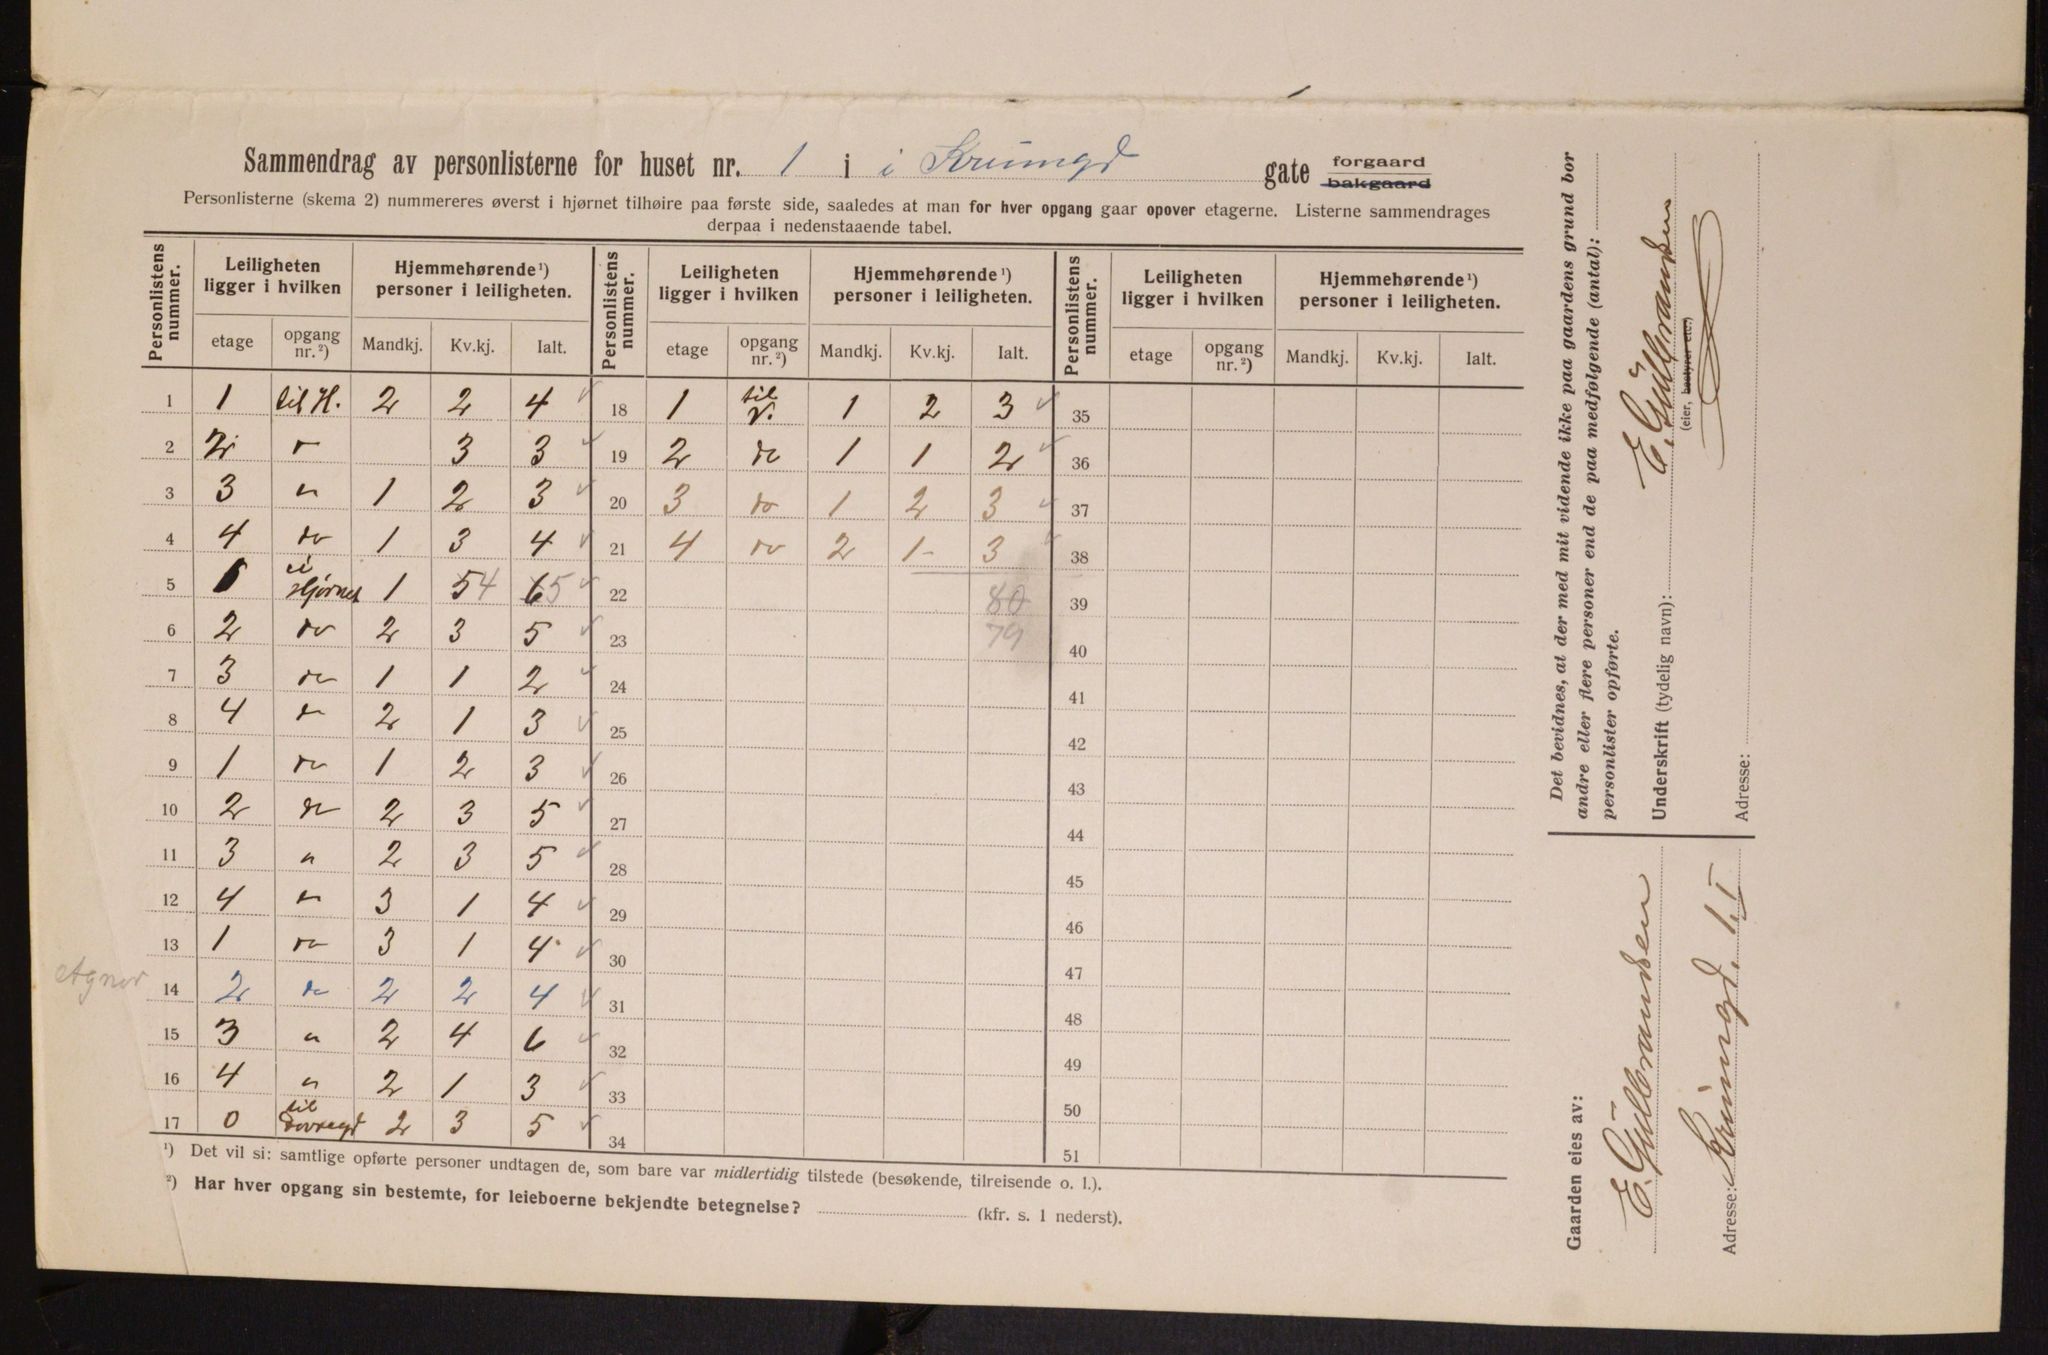 Sammendrag av personlisterne for huset nr. 1 i i Krumgd gate forgaard bakgaard
Personlisterne (skema 2) nummereres øverst i hjørnet tilhøire paa første side, saaledes at man for hver opgang gaar opover etagerne. Listerne sammendrages
derpaa i nedenstaaende tabel.
Personlistens nummer. Leiligheten ligger i hvilken Hjemmehørende ¹) personer i leiligheten. Personlistens nummer. Leiligheten ligger i hvilken Hjemmehørende ¹) personer i leiligheten. Personlistens nummer. Leiligheten ligger i hvilken Hjemmehørende ¹) personer i leiligheten.
etage opgang nr. ²) Mandkj. Kv.kj. Ialt. etage opgang nr. ²) Mandkj. Kv.kj. Ialt. etage opgang nr. ²) Mandkj. Kv.kj. Ialt.
1 1 til H. 2 2 4 18 1 til V. 1 2 3 35
2 2 " 3 3 19 2 do 1 1 2 36
3 3 " 1 2 3 20 3 do 1 2 3 37
4 4 do 1 3 4 21 4 do 2 1 3 38
5 1 i Hjørnet 1 5 4 6 5 22 80 39
6 2 do 2 3 5 23 79 40
7 3 do 1 1 2 24 41
8 4 do 2 1 3 25 42
9 1 do 1 2 3 26 43
10 2 do 2 3 5 27 44
11 3 " 2 3 5 28 45
12 4 " 3 1 4 29 46
13 1 do 3 1 4 30 47
14 2 do 2 2 4 31 48
15 3 " 2 4 6 32 49
16 4 " 2 1 3 33 50
17 0 til Dovregd 2 3 5 34 51
¹) Det vil si: samtlige opførte personer undtagen de, som bare var midlertidig tilstede (besøkende, tilreisende o. l.).
²) Har hver opgang sin bestemte, for leieboerne bekjendte betegnelse? (kfr. s. 1 nederst).
Det bevidnes, at der med mit vidende ikke paa gaardens grund bor
andre eller flere personer end de paa medfølgende (antal):
personlister opførte.
Underskrift (tydelig navn): E. Gulbrandsen
(eier, bestyrer etc.)
Adresse:
Gaarden eies av:
E. Gulbrandsen
Adresse: Krumgd. 1. I